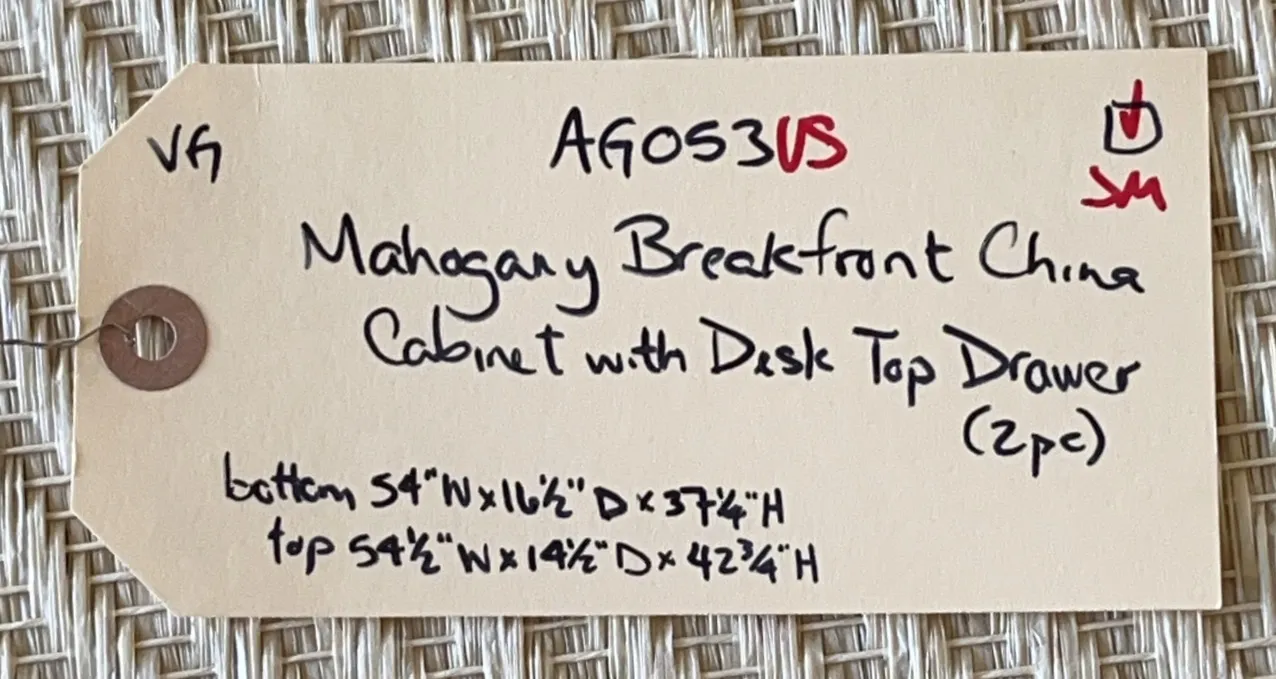 VG AG053VS D
SM
Mahogany Breakfront China
Cabinet with Desk Top Drawer
(2pc)
bottom 54"W x 16½" D x 37¼"H
top 54½"W x 14½"D x 42¾"H